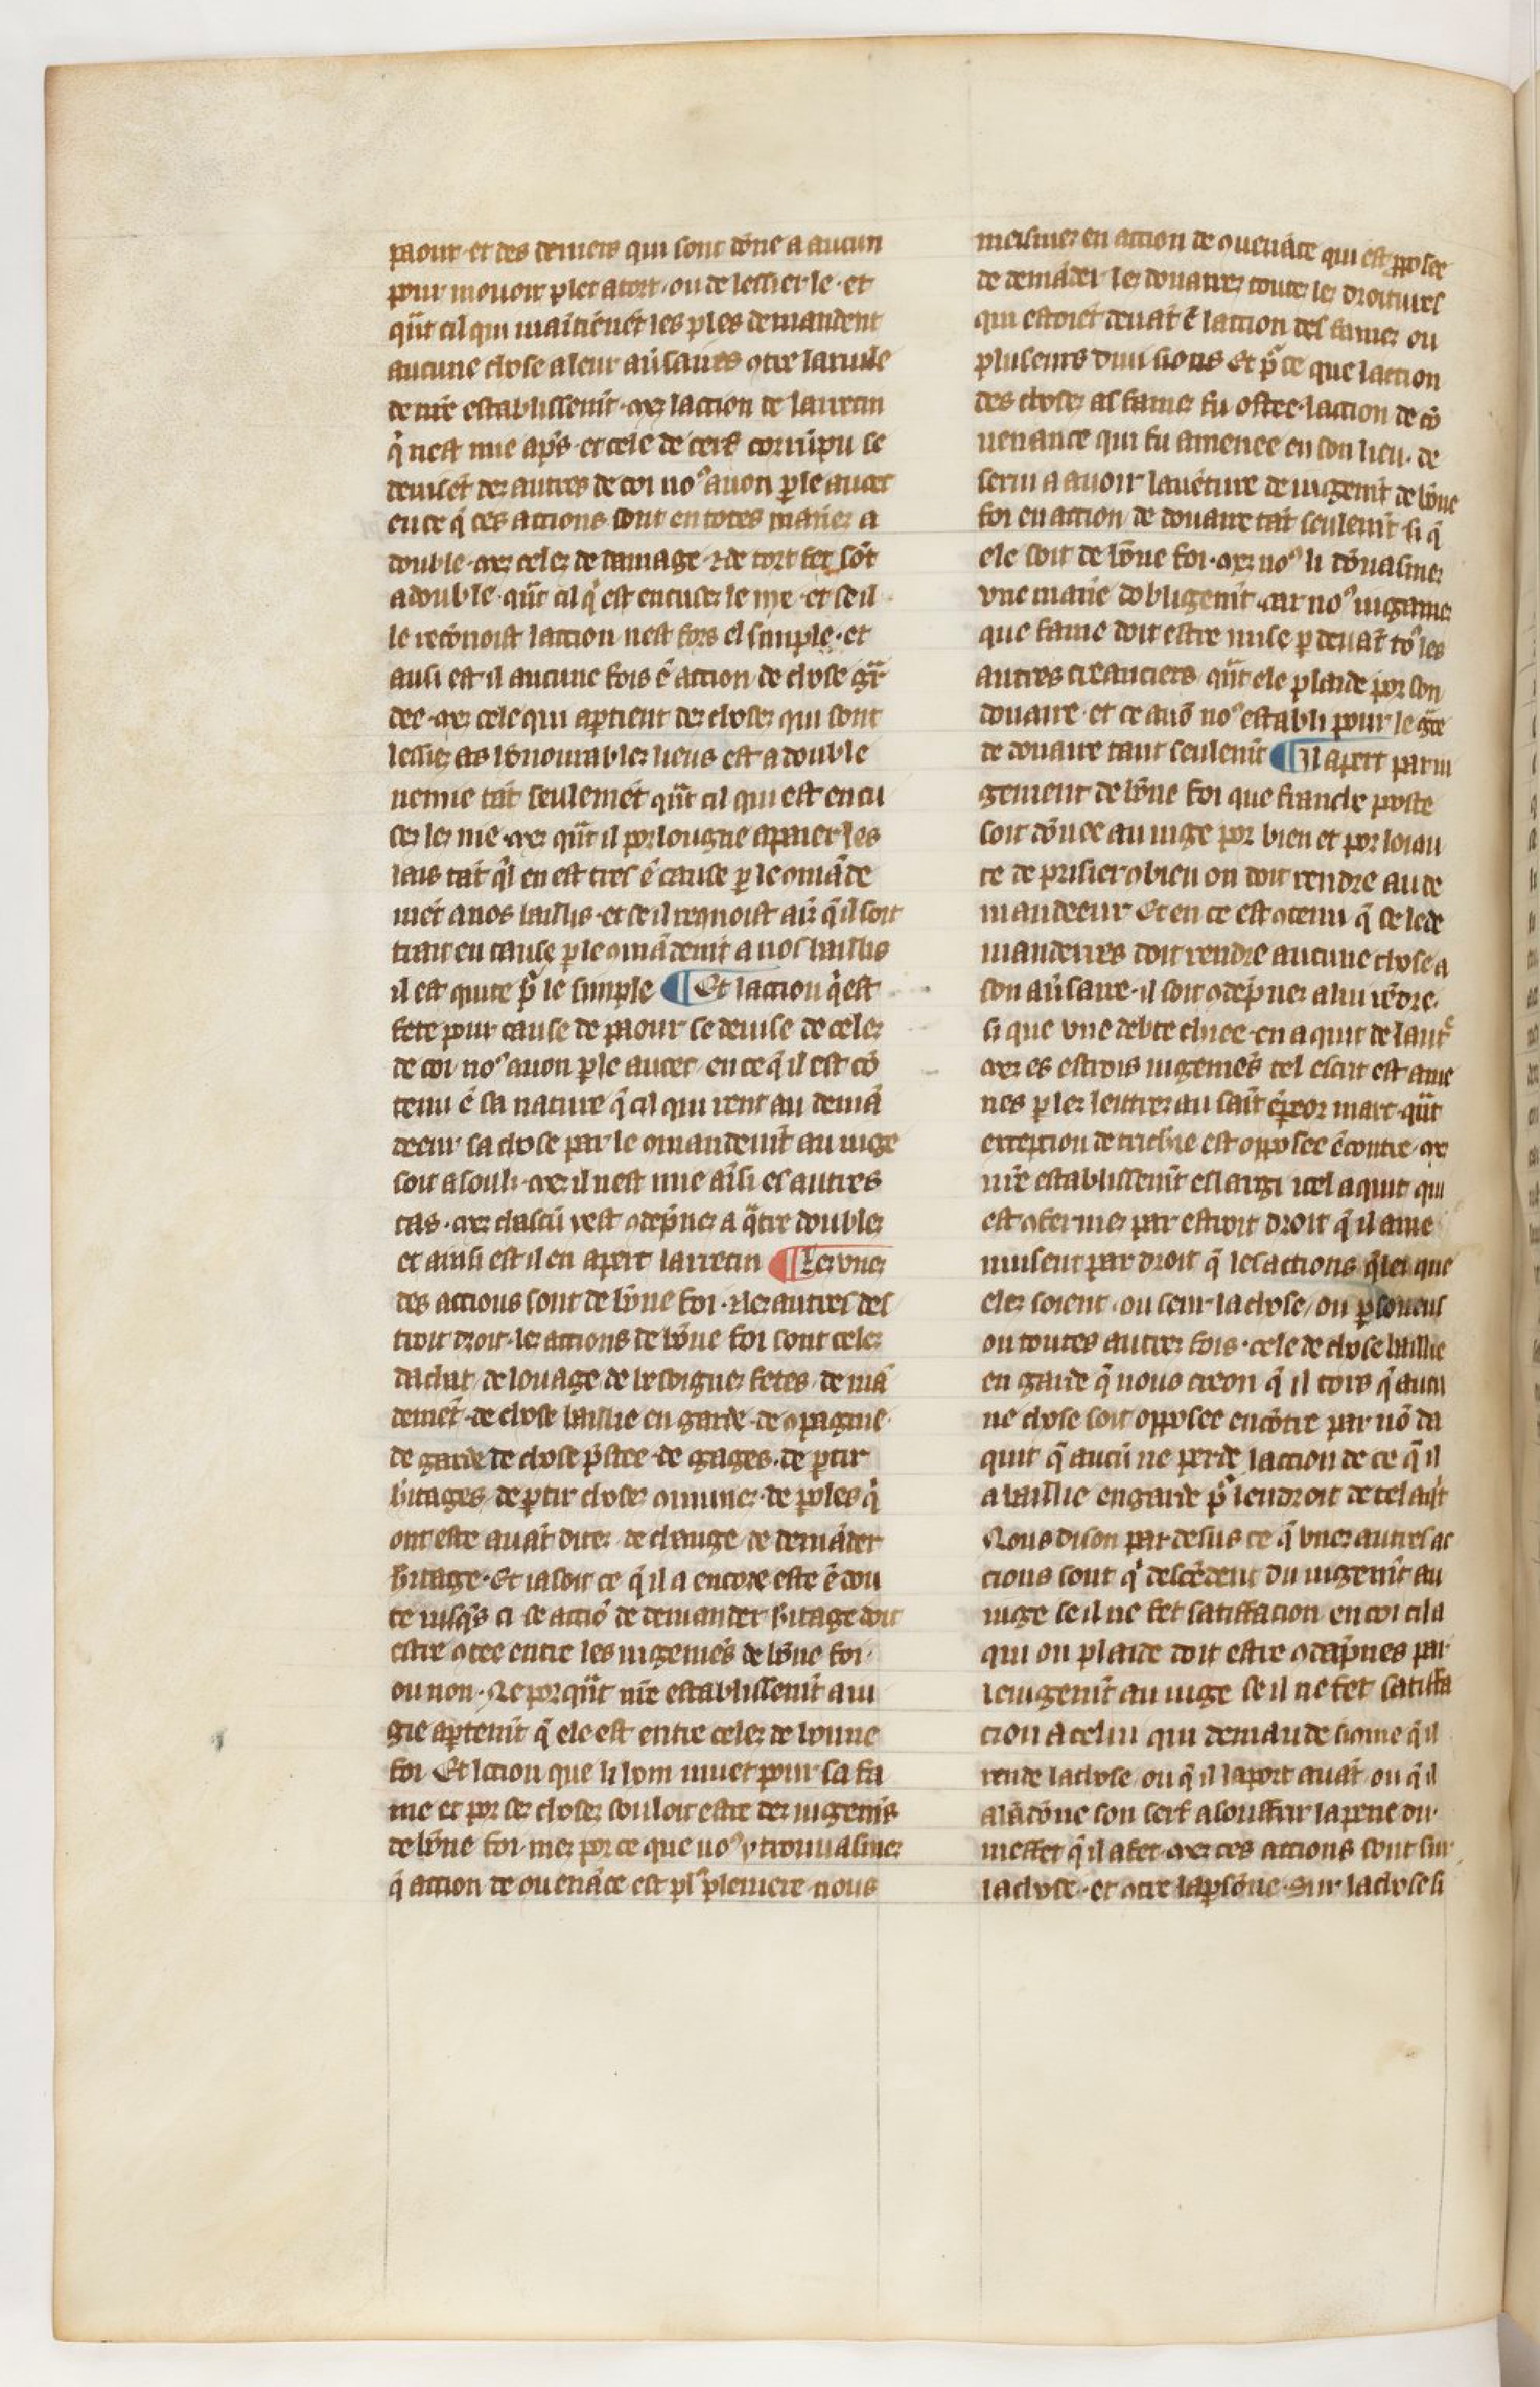 paour et des deniers qui sont done a aucun
pour mouoir plet a tort ou de lessier le et
qñt cil qui maītiēnēt les ples demandent
aucune chose a leur aūsaires otre la rieule
de nr̄e establissemt̄ mez laction de larrecin
q̄ nest mie aps̄ et cele de serf corrūpu se
deuisēt dez autres de coi noꝰ auon ple auet
en ce q̄ ces actions sont en totes manez a
double mez celez de damage ⁊ de tort fet sōt
a double qñt cil q̄ est encusez le nye et se il
le recōnoist laction nest fors el simple et
ausi est il aucune fois ē action de chose gr̄
dee mez cele qui aptient dez chosez qui sont
lessiez as hōnourablez lieus est a double
uenue tāt seulemēt qñt cil qui est encu
sez lez nie mez qñt il porlongne apaier les
lais tāt q̄l en est tres ē cause p le omāde
mēt a nos baillis et se il reqnoist aīz q̄ il soit
trait en cause p le omādemt̄ a nos baillis
il est quite pͬ le simple ¶ Et laction q̄ est
fete pour cause de paour se deuise de celez
de coi noꝰ auon ple auet en ce q̄ il est cō
tenu ē sa nature q̄ cil qui rent au demā
deeur sa chose par le omandemt̄ au iuge
soit asouls mez il nest mie aīsi es autres
cas mez chascū yest odēpnez a q̄tre doublez
et ainsi est il en apert larrecin ¶ Lez vnez
des actions sont de bōne foi ⁊ lez autres des
troit droit lez actions de bōne foi sont celez
dachat de louage de besoignez fetes de mā
demēt de chose baillie en garde de opagnie
de garde de chose pstee de gages de ptir
hitages de ptir chosez omunez de poles q̄
ont este auāt ditez de change de demāder
hitage Et ia soit ce q̄ il a encore este ē dou
te iusqs̄ ci se actiō de demander hitage doit
estre otee entre les iugemēs de bōne foi
ou non Ne por qñt nr̄e establissemt̄ a iu
gie apertemt̄ q̄ ele est entre celez de bonne
foi Et lction que li hom muet pour sa fa
me et por sez chosez souloit estre dez iugemīs
de bōne foi mez por ce que noꝰ y trouuasmez
q̄ action de ouenāce est plꝰ pleniere nous
meismez en action de ouenāce qui est pposee
de demāder lez douairez toutez lez droitures
qui estoiēt deuāt ē laction des famez ou
pluseurs diuisions Et pͬ ce que laction
des chosez as famez fu ostee laction de cō
uenance qui fu amenee en son lieu de
serui a auoir lauēture de iugemt̄ de bōne
foi en action de douaire tāt seulemt̄ si q̄
ele soit de bōne foi mez noꝰ li dōnasmez
vne manie dobligemt̄ car noꝰ iugamez
que fame doit estre mise p deuāt toꝰ les
autres creanciers qñt ele plaide por son
douaire et ce auō noꝰ establi pour le gre
de douaire tant seulemt̄ ¶ Il apert par iu
gement de bōne foi que franche poste
soit dōnee au iuge por bien et por loiau
te de prisier obien on doit rendre au de
mandeeur Et en ce est otenu q̄ se le de
manderres doit rendre aucune chose a
son aūsaire il soit odēpnez a lui rēdre
si que vne debte chiee en aquit de lautͤ
mez es estrois iugemēs tel escrit est ame
nes p lez lettrez au saīt ēpeor marc qñt
exception de tricherie est opposee ēcontre mez
nr̄e establissemt̄ eslargi icel aquit qui
est ofermez par estroit droit q̄ il ame
nuisent par droit q̄ les actions q̄lez que
elez soient ou seur la chose ou psoneus
ou toutes autrez fois cele de chose baillie
en garde q̄ nous creon q̄ il tors q̄ aucu
ne chose soit opposee encōtre par nō da
quit q̄ aucū ne perde laction de ce q̄ il
a baillie en garde pͬ lendroit de tel aqt̄
Nous dison par desus ce q̄ vnez autres ac
cions sont q̄ descēdent du iugemt̄ au
iuge se il ne fet satiffacion en coi cil a
qui on plaide doit estre odāpnes par
le iugemt̄ au iuge se il ne fet satiffa
cion a celui qui demande siome q̄ il
rende la chose ou q̄ il laport auāt ou q̄ il
abādōne son serf a souffrir la peine du
meffet q̄ il a fet mez ces actions sont sur
la chose et otre la psōne Sur la chose si